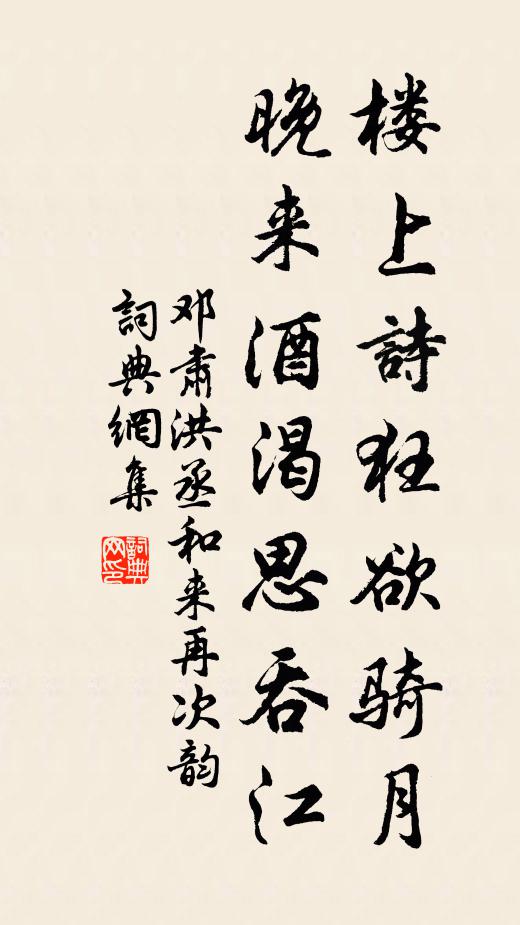 楼上詩狂欲骑月
晚来酒渴思吞江
邓肃洪丞和来再次韵
詞典網集
詞典网印